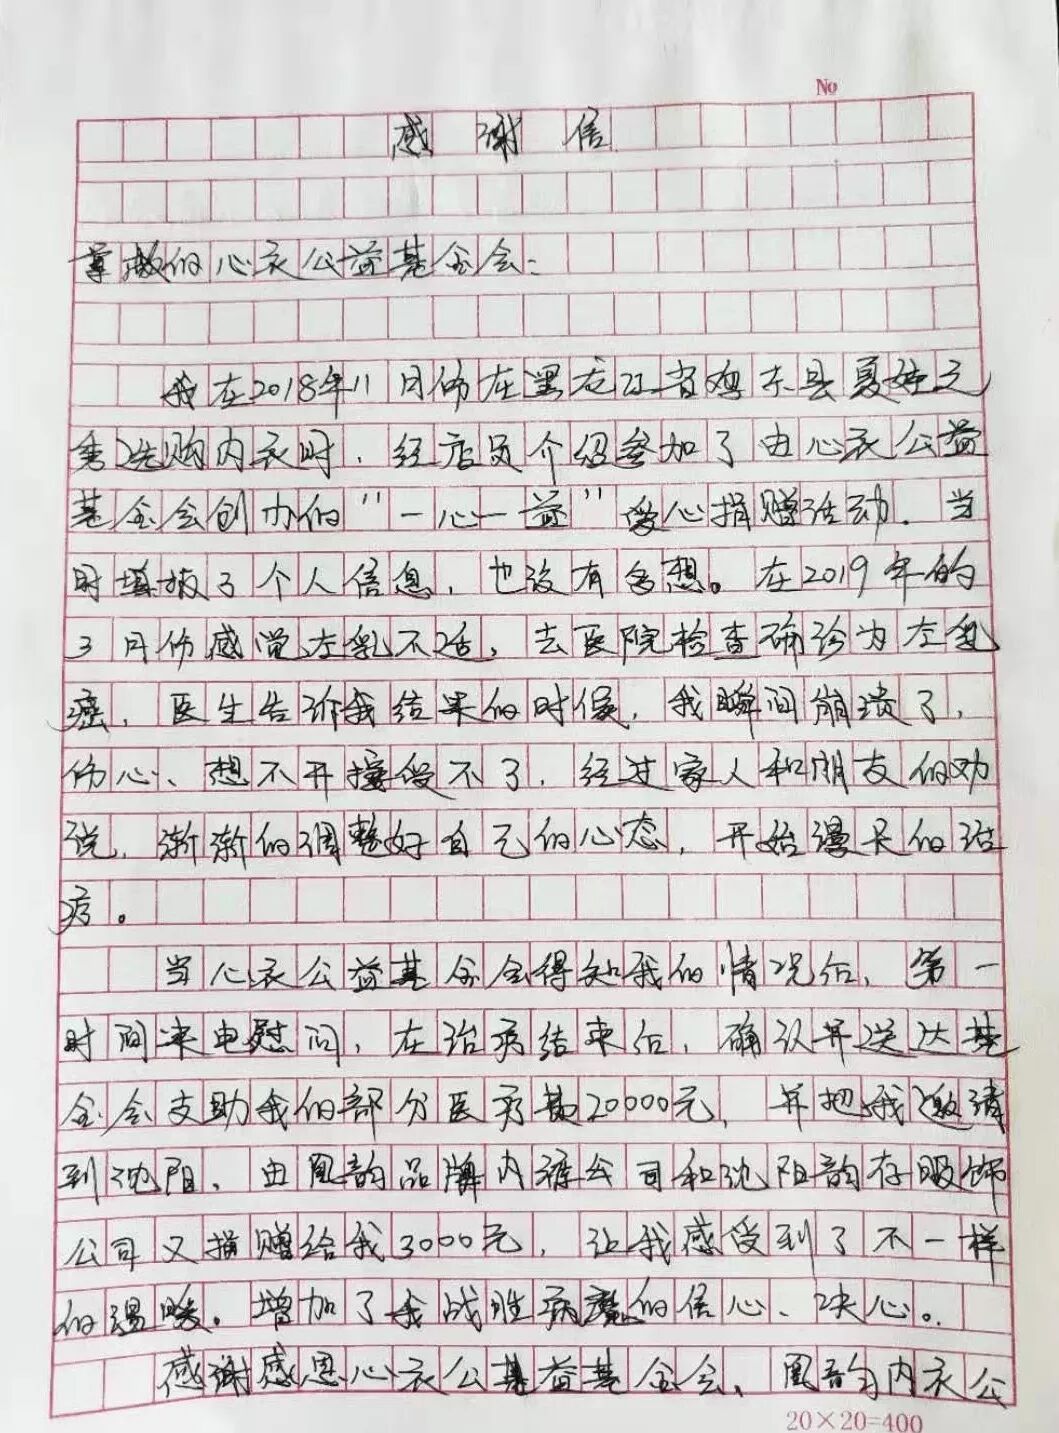 No
感谢信
尊敬的心衣公益基金会：
我在2018年11月份在黑龙江省鸡东县夏娃之
秀选购内衣时，经店员介绍参加了由心衣公益
基金会创办的“一心一益”爱心捐赠活动．当
时填报了个人信息，也没有多想。在2019年的
3月份感觉左乳不适，去医院检查确诊为左乳
癌，医生告诉我结果的时候，我瞬间崩溃了，
伤心、想不开接受不了，经过家人和朋友的劝
说，渐渐的调整好自己的心态，开始漫长的治
疗。
当心衣公益基金会得知我的情况后，第一
时间来电慰问，在治疗结束后，确认并送达基
金会支助我的部分医疗费20000元，并把我邀请
到沈阳，由凰韵品牌内裤公司和沈阳韵存服饰
公司又捐赠给我3000元，让我感受到了不一样
的温暖。增加了我战胜病魔的信心、决心。
感谢感恩心衣公益基金会、凰韵内衣公
20×20=400